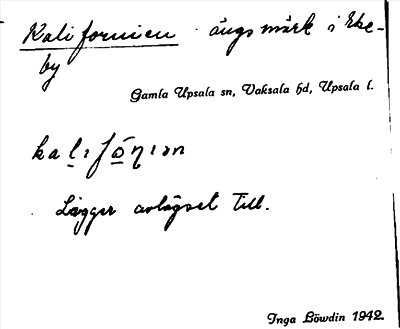 Kalifornien ängsmärk i Eke-
by
Gamla Upsala sn, Vaksala hd, Upsala l.
Ligger avlägset till.
Inga Löwdin 1942.